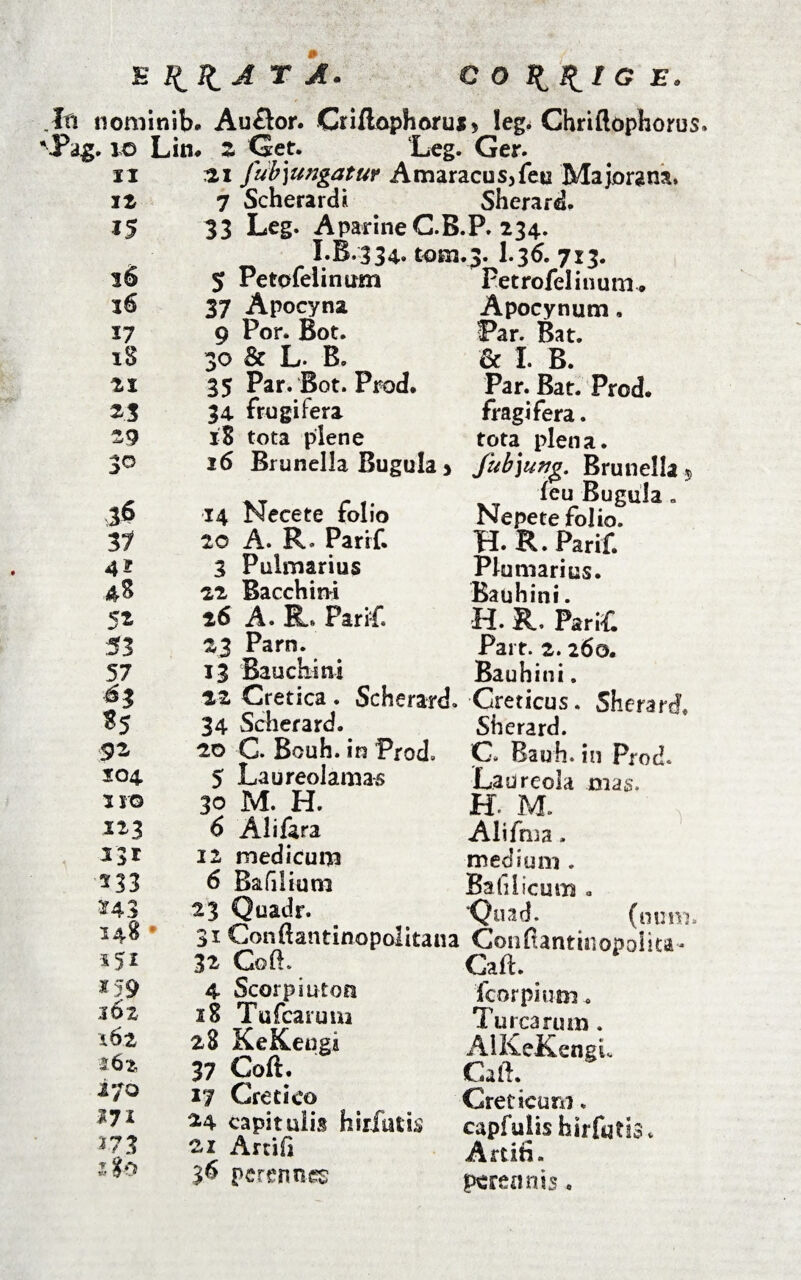 ERRATA. CORRIGE.
In nominib. Auctor. Criſtophorus, leg. Chriſtophorus.
Pag. 10 Lin. 2 Get. Leg. Ger.
11 21 ſubjungatur Amaracus, ſeu Majorana.
12 7 Scherardi Sherard.
15 33 Leg. Aparine C.B.P. 234.
I.B.334. tom.3. l.36. 713.
16 5 Petoſelinum Petroſelinum.
16 37 Apocyna Apocynum.
17 9 Por. Bot. Par. Bat.
18 30 & L. B. & I. B.
21 35 Par. Bot. Prod. Par. Bat. Prod.
23 34 frugifera fragifera.
29 18 tota plene tota plena.
30 16 Brunella Bugula, ſubjung. Brunella,
ſeu Bugula.
36 14 Necete folio Nepete folio.
37 20 A. R. Pariſ. H. R. Pariſ.
41 3 Pulmarius Plumarius.
48 22 Bacchini Bauhini.
52 26 A. R. Pariſ. H. R. Pariſ.
53 23 Parn. Part. 2. 260.
57 13 Bauchini Bauhini.
63 22 Cretica. Scherard. Creticus. Sherard.
85 34 Scherard. Sherard.
92 20 C. Bouh. in Prod. C. Bauh. in Prod.
104 5 Laureolamas Laureola mas.
110 30 M. H. H. M.
123 6 Aliſara Aliſma.
131 12 medicum medium.
133 6 Baſilium Baſilicum.
143 23 Quadr. Quad. (num.
148 31 Conſtantinopolitana Conſtantinopolita-
151 32 Coſt. Caſt.
159 4 Scorpiuton ſcorpium.
162 18 Tuſcarum Turcarum.
162 28 KeKengi AlKeKengi.
162 37 Coſt. Caſt.
170 17 Cretico Creticum.
171 24 capitulis hirſutis capſulis hirſutis.
173 21 Artiſi Artifi.
180 36 perennes perennis.